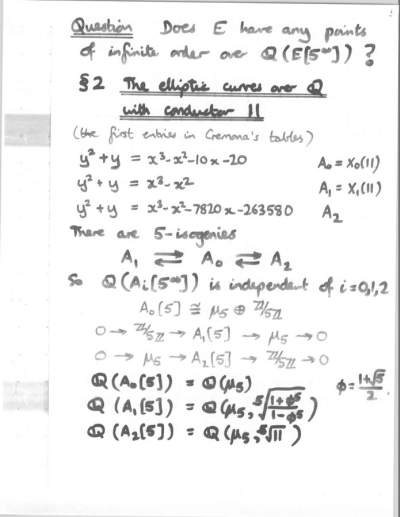 Question Does E have any points
of infinite order over Q(E[5^∞]) ?
§2 The elliptic curves over Q
with conductor 11
(the first entries in Cremona's tables)
y² + y = x³ - x² - 10x - 20 A₀ = X₀(11)
y² + y = x³ - x² A₁ = X₁(11)
y² + y = x³ - x² - 7820x - 263580 A₂
There are 5-isogenies
A₁ ⇄ A₀ ⇄ A₂
So Q(Aᵢ[5^∞]) is independent of i=0,1,2
A₀[5] ≅ μ₅ ⊕ Z/5Z
0 → Z/5Z → A₁[5] → μ₅ → 0
0 → μ₅ → A₂[5] → Z/5Z → 0
Q(A₀[5]) = Q(μ₅) φ = (1+√5)/2
Q(A₁[5]) = Q(μ₅, ⁵√((1+φ⁵)/(1-φ⁵)))
Q(A₂[5]) = Q(μ₅, ⁵√11)